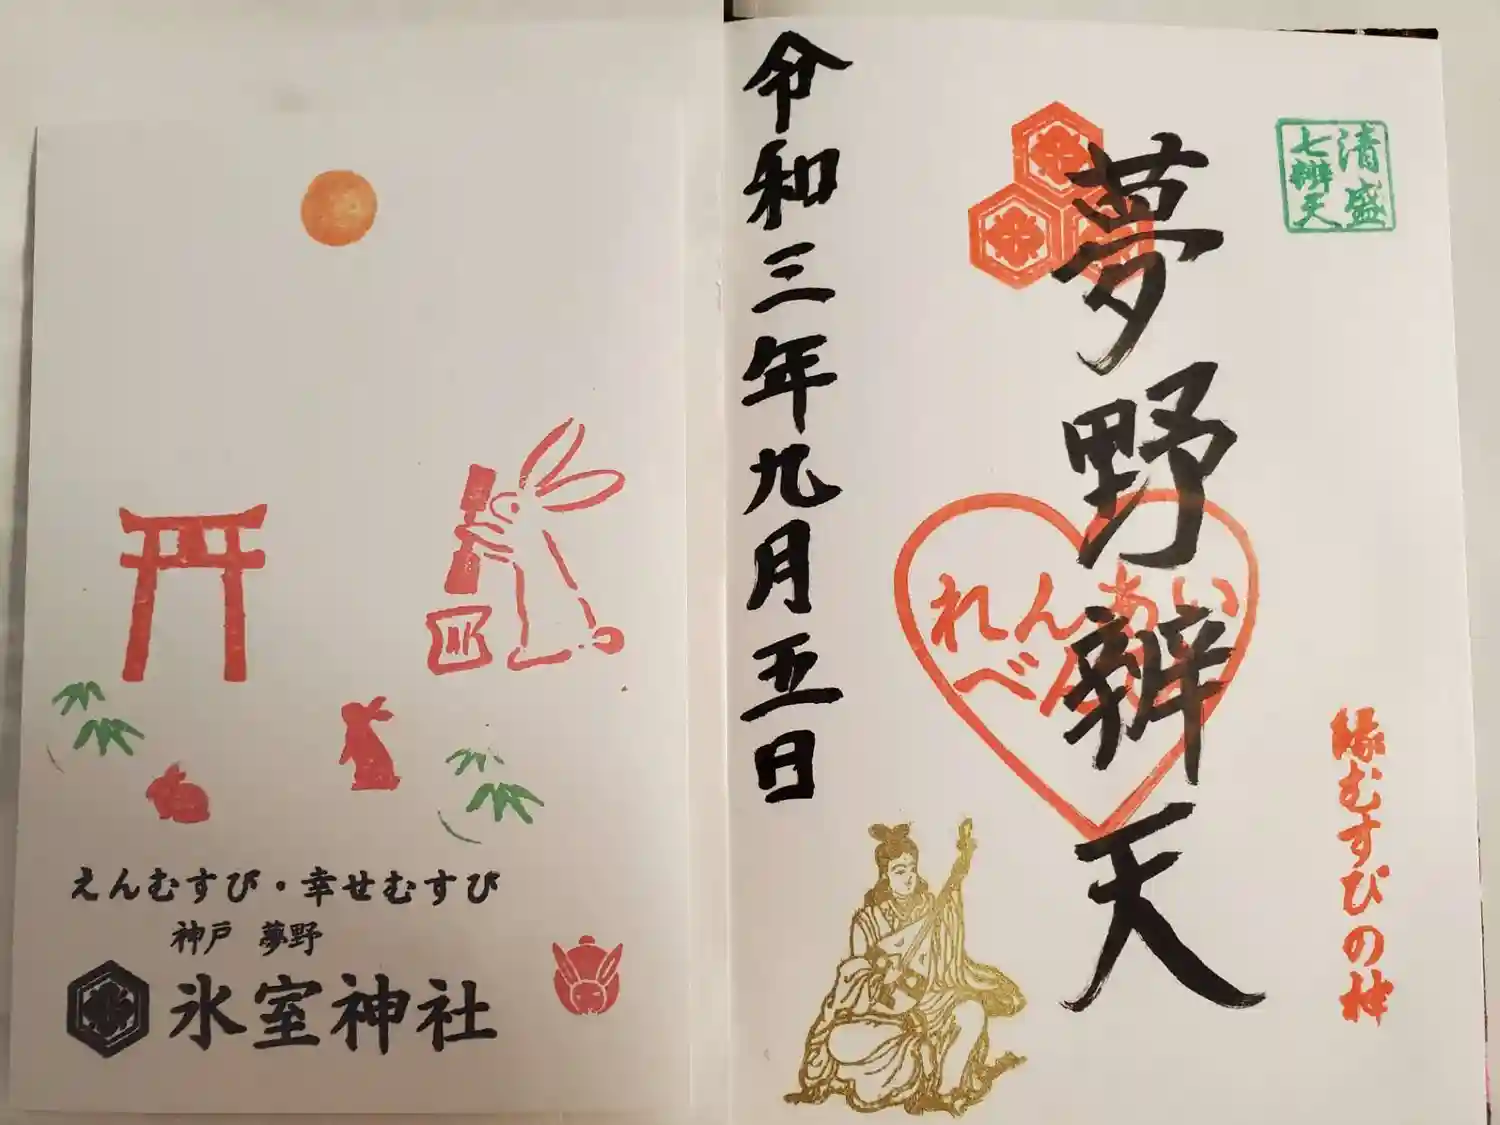 清盛
七辨天
夢野辨天
れんあい
べん
縁むすびの神
令和三年九月五日
えんむすび・幸せむすび
神戸 夢野
氷室神社